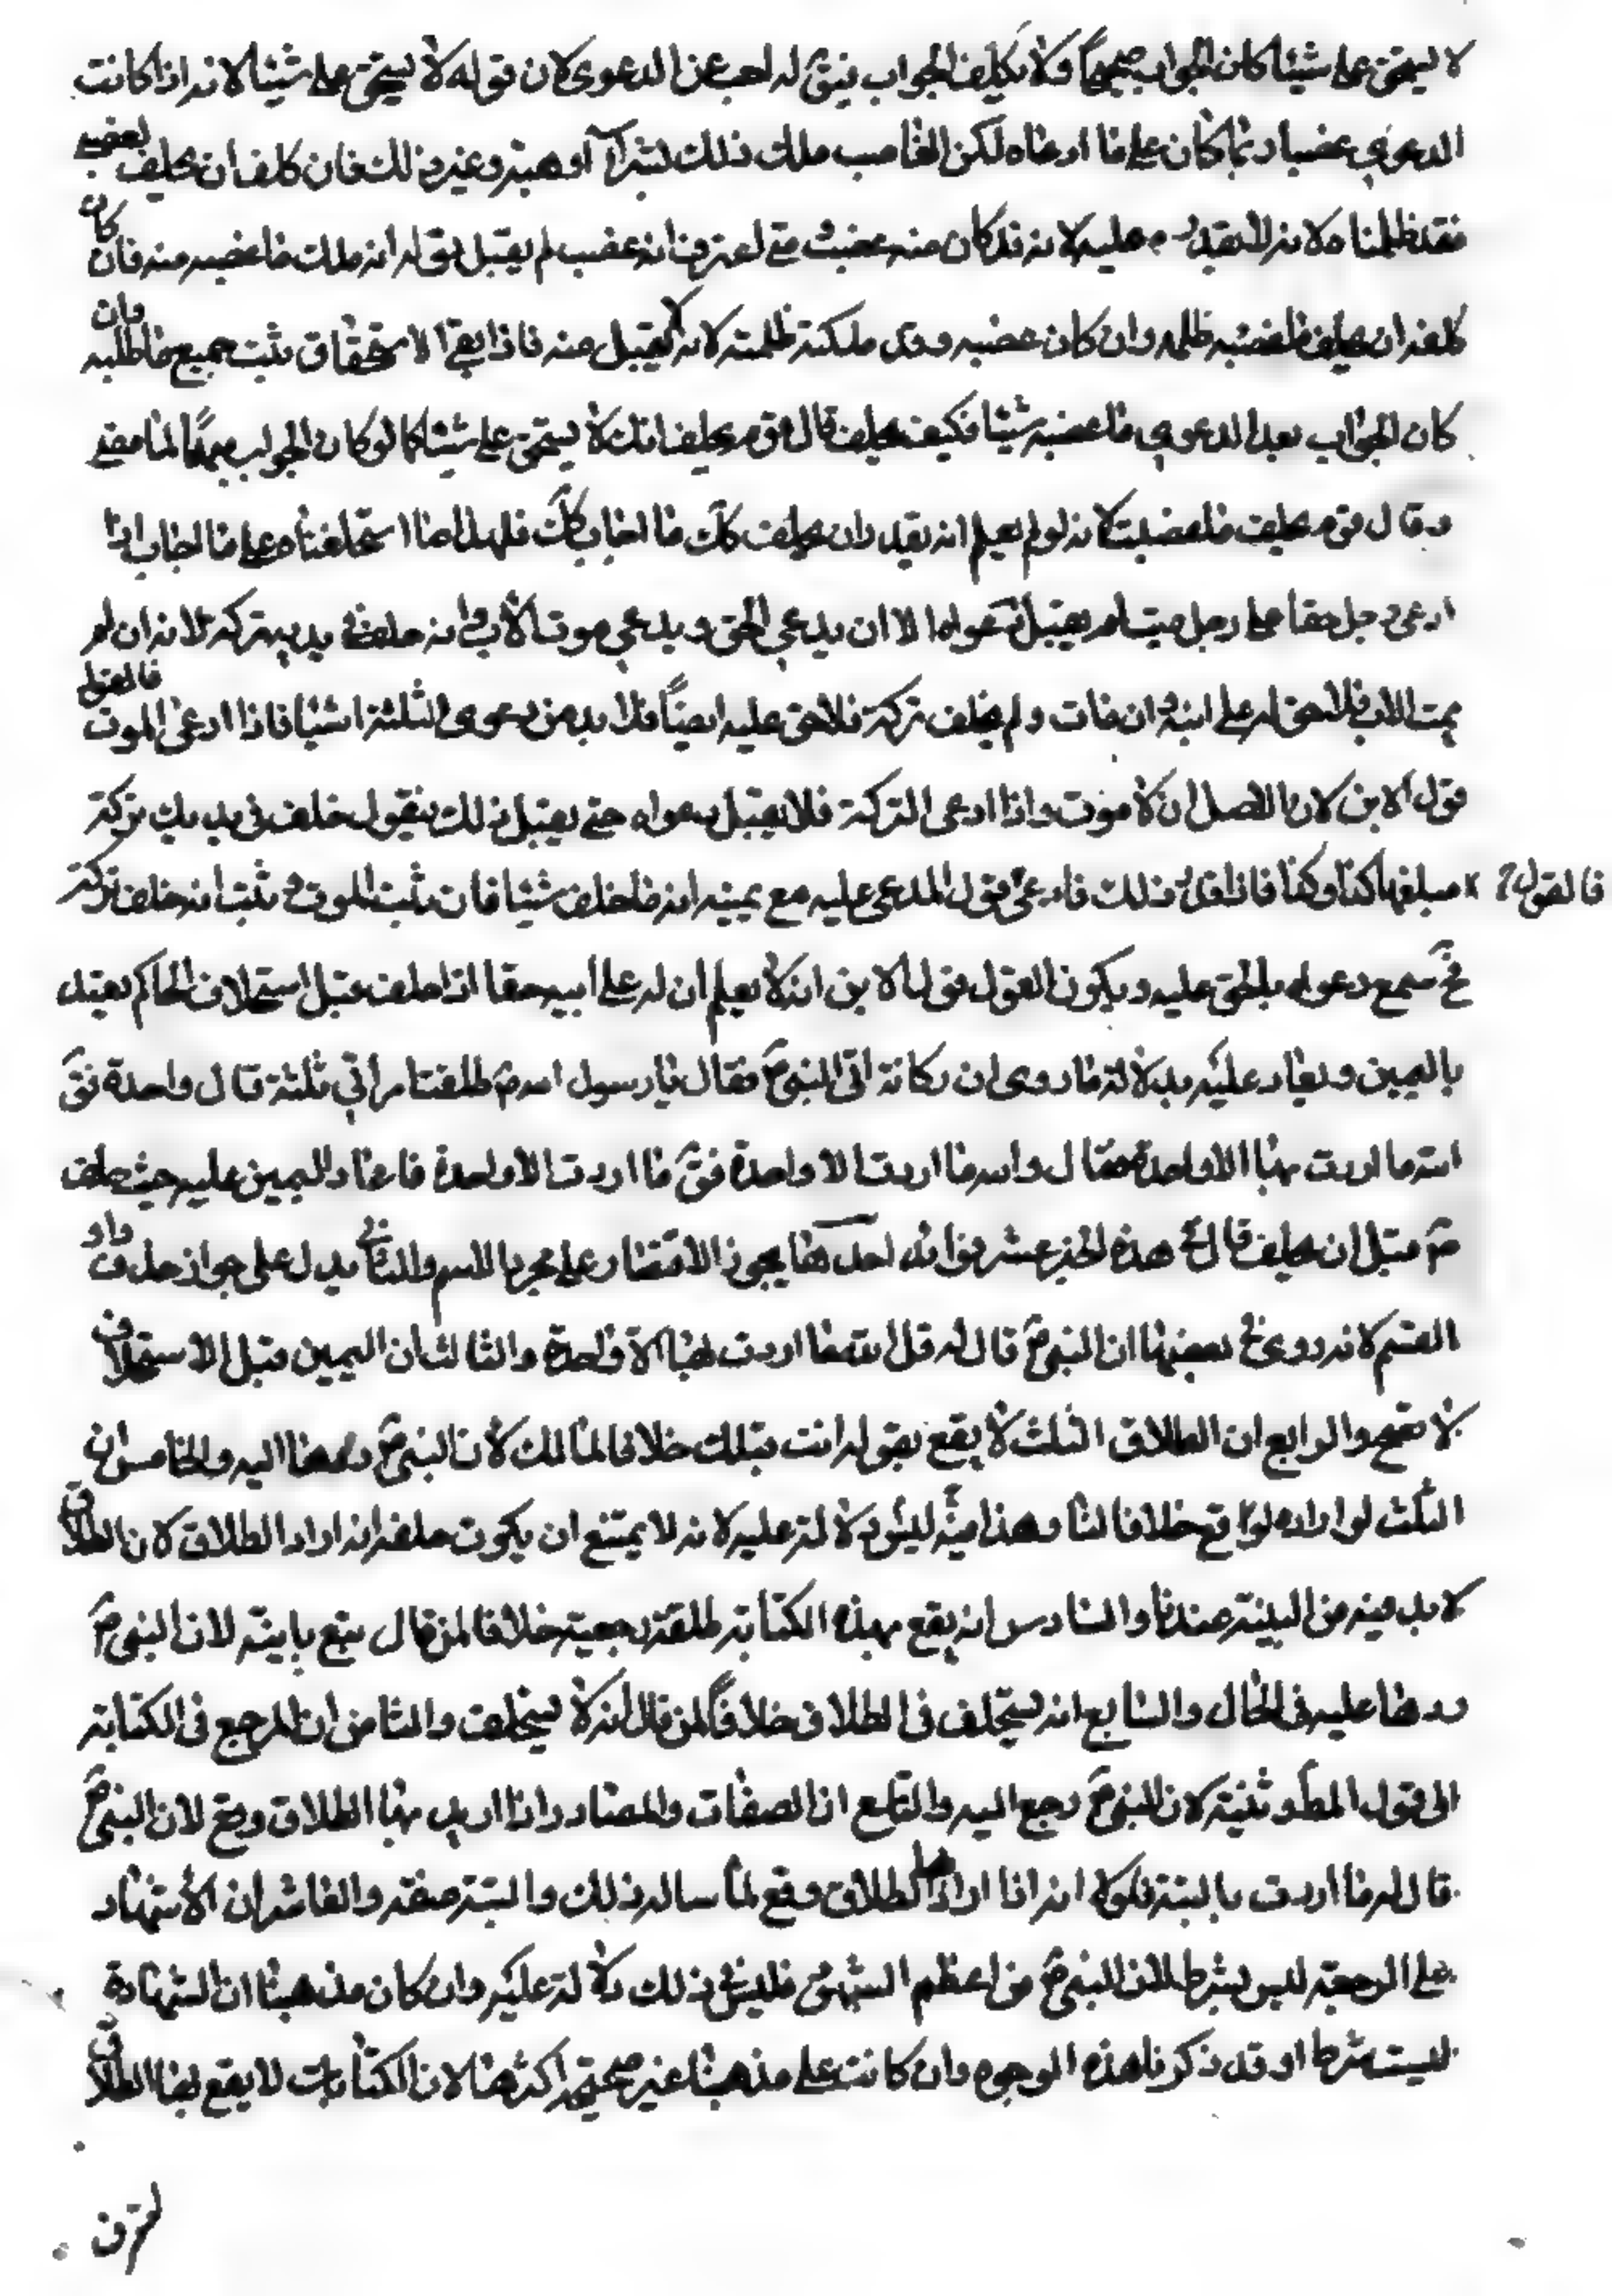 لا يستحق على شيئا كان الجواب صحيحا ولا يكلف الجواب فيق له اجب عن الدعوى لان قوله لا يستحق على شيئا لانه اذا كانت
الدعوى غصبا ربما كان على ما ادعاه لكن الغاصب ملك ذلك بشراء او هبة وغير ذلك فان كلف ان يحلف لغصبه
فقد ظلمناه لانه لا يقدر عليه لانه قد كان منه غصب متى اعترف انه غصب لم يقبل قوله انه ملك ما غصبه منه فان كان
كلفه ان يحلف ما غصبته ظلمه وان كان غصبه وقد ملكته ظلمته لانه لا يقبل منه فاذا بقى الاستحقاق يثبت جميع ما طلبه وان
كان الجواب بعد الدعوى ما غصبته شيئا فكيف يحلف قال قوم يحلف انك لا يستحق على شيئا كما لو كان الجواب مبهما لما مضى
وقال قوم يحلف ما غصبت لانه لو لم يعلم انه يقدر ان يحلف كك ما اجاب كك فلهذا استحلفناه على ما اجاب اذا
ادعى رجل حقا على رجل ميت لم يقبل دعواه الا ان يدعى الحق ويدعى موت الاب وانه خلف فى يديه تركة لانه ان لم
يمت الاب فلا حق له على ابنه وان مات ولم يخلف تركة فلا حق عليه ايضا فلا بد من دعوى الثلثة اشيا فاذا ادعى الموت فالقول
قول الابن لان الاصل ان لا موت واذا ادعى التركة فلا يقبل دعواه حتى يقبل ذلك فيقول خلف فى يديك تركة
فالقول مبلغها كذا وكذا فاذا قدر ذلك فادعى قول المدعى عليه مع يمينه انه ما خلف شيئا فان ثبت الموت وثبت انه خلف تركة
ح سمع دعواه بالحق عليه ويكون القول قول الابن انه لا يعلم ان له على ابيه حقا اذا حلف قبل استحلاف الحاكم يعتد
باليمين ويعاد عليه بدلالة ما روى ان ركانة اتى النبى ص فقال يا رسول الله ص طلقت امراتى ثلثة قال واحدة فق
الله ما اردت بها الا واحدة فقال والله ما اردت الا واحدة فق ما اردت الا واحدة فاعاد اليمين عليه حيث حلف
ص قبل ان يحلف قال فى هذه الخبر عشر فوائد احدها يجوز الاقتصار على مجرد الاسم والثانى يدل على جواز حذف واو
القسم لانه روى فى بعضها ان النبى ص قال له قل الله ما اردت بها الا واحدة والثالث ان اليمين قبل الاستحلاف
لا تصح والرابع ان الطلاق الثلث لا يقع بقوله انت بتلك خلافا لمالك لان النبى ص ردها اليه والخامس ان
الثلث لو اراده لوقع خلافا لنا وهذا فيه ليس دلالة عليه لانه لا يمتنع ان يكون حلفه انه اراد الطلاق لان الطلاق
لا بد فيه من البينة عندنا والسادس انه يقع بهذه الكناية طلقة رجعية خلافا لمن قال تقع باينة لان النبى ص
ردها عليه فى الحال والسابع انه يستحلف فى الطلاق خلافا لمن قال انه لا يستحلف والثامن ان المرجع فى الكناية
الى قول المطلق ونيته لان النبى ص رجع اليه والتاسع ان الصفات والمصادر اذا اريد بها الطلاق وقع لان النبى ص
قال له ما اردت بالبتة فلولا انه اذا اراد بها الطلاق وقع لما ساله ذلك والبتة صفة والعاشر ان الاشهاد
على الرجعة ليس بشرط لان النبى ص من اعظم الشهود فليس فى ذلك دلالة عليه وان كان مذهبنا ان الشهادة
ليست شرطا وقد ذكرنا هذه الوجوه وان كانت على مذهبنا غير صحيحة اكثرها لان الكنايات لا يقع بها الطلاق